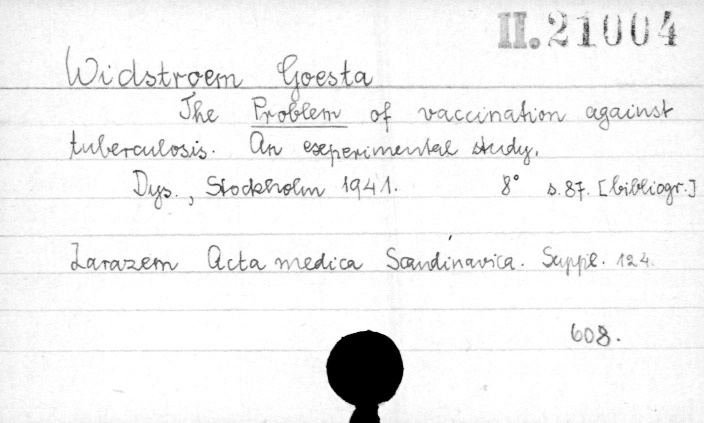 II.21004
Widstroem Goesta
The Problem of vaccination against
tuberculosis. An experimental study.
Dys., Stockholm 1941. 8° s.87. [bibliogr.]
Zarazem Acta medica Scandinavica. Suppl. 124.
608.